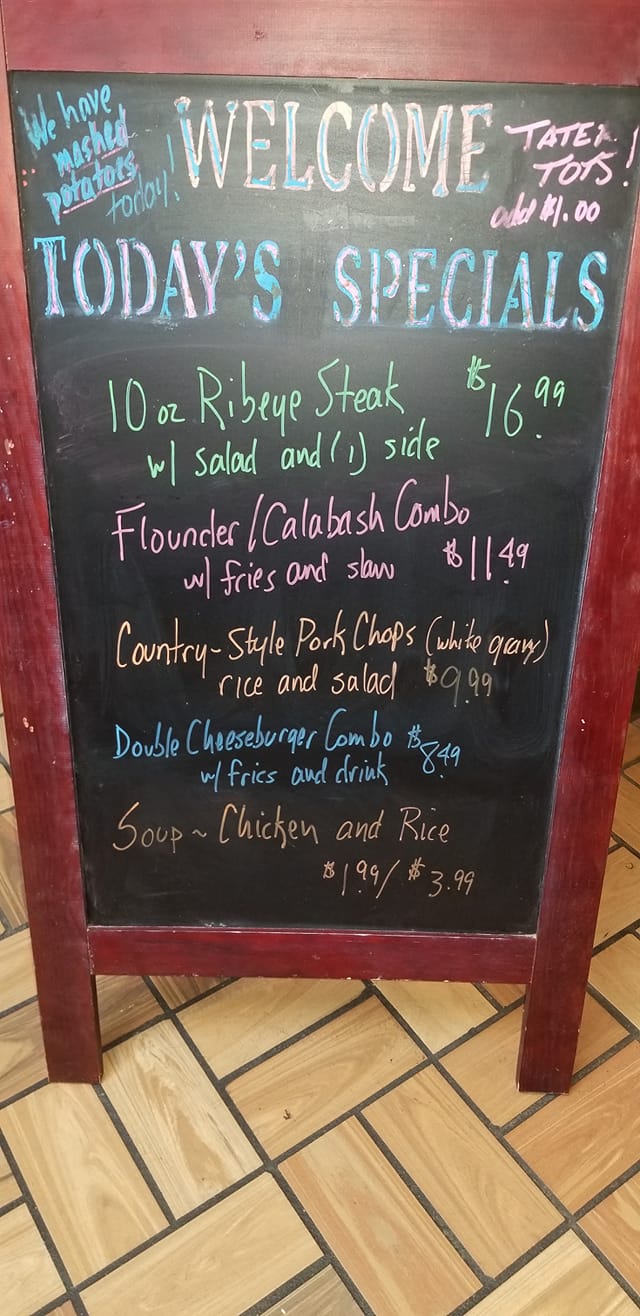 We have
mashed
potatoes
today!
WELCOME
TATER
TOTS!
add $1.00
TODAY'S SPECIALS
10 oz Ribeye Steak $16.99
w/ salad and (1) side
Flounder/Calabash Combo
w/ fries and slaw $11.49
Country-Style Pork Chops (white gravy)
rice and salad $9.99
Double Cheeseburger Combo $8.49
w/ fries and drink
Soup ~ Chicken and Rice
$1.99/ $3.99